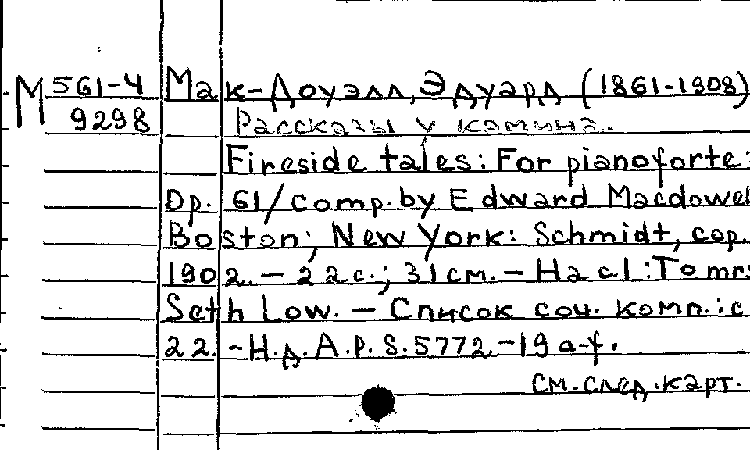 М 561-4 Мак-Доуэлл, Эдуард (1861-1908)
9298 Рассказы у камина.
Fireside tales: For pianoforte:
Op. 61/comp. by Edward Macdowel
Boston; New York: Schmidt, cop.
1902. - 22 с.; 31 см. - На с1: To mrs
Seth Low. - Список соч. комп.: с
22. - Н.д. A.P.S. 5772 - 19 a-f.
См. след. карт.